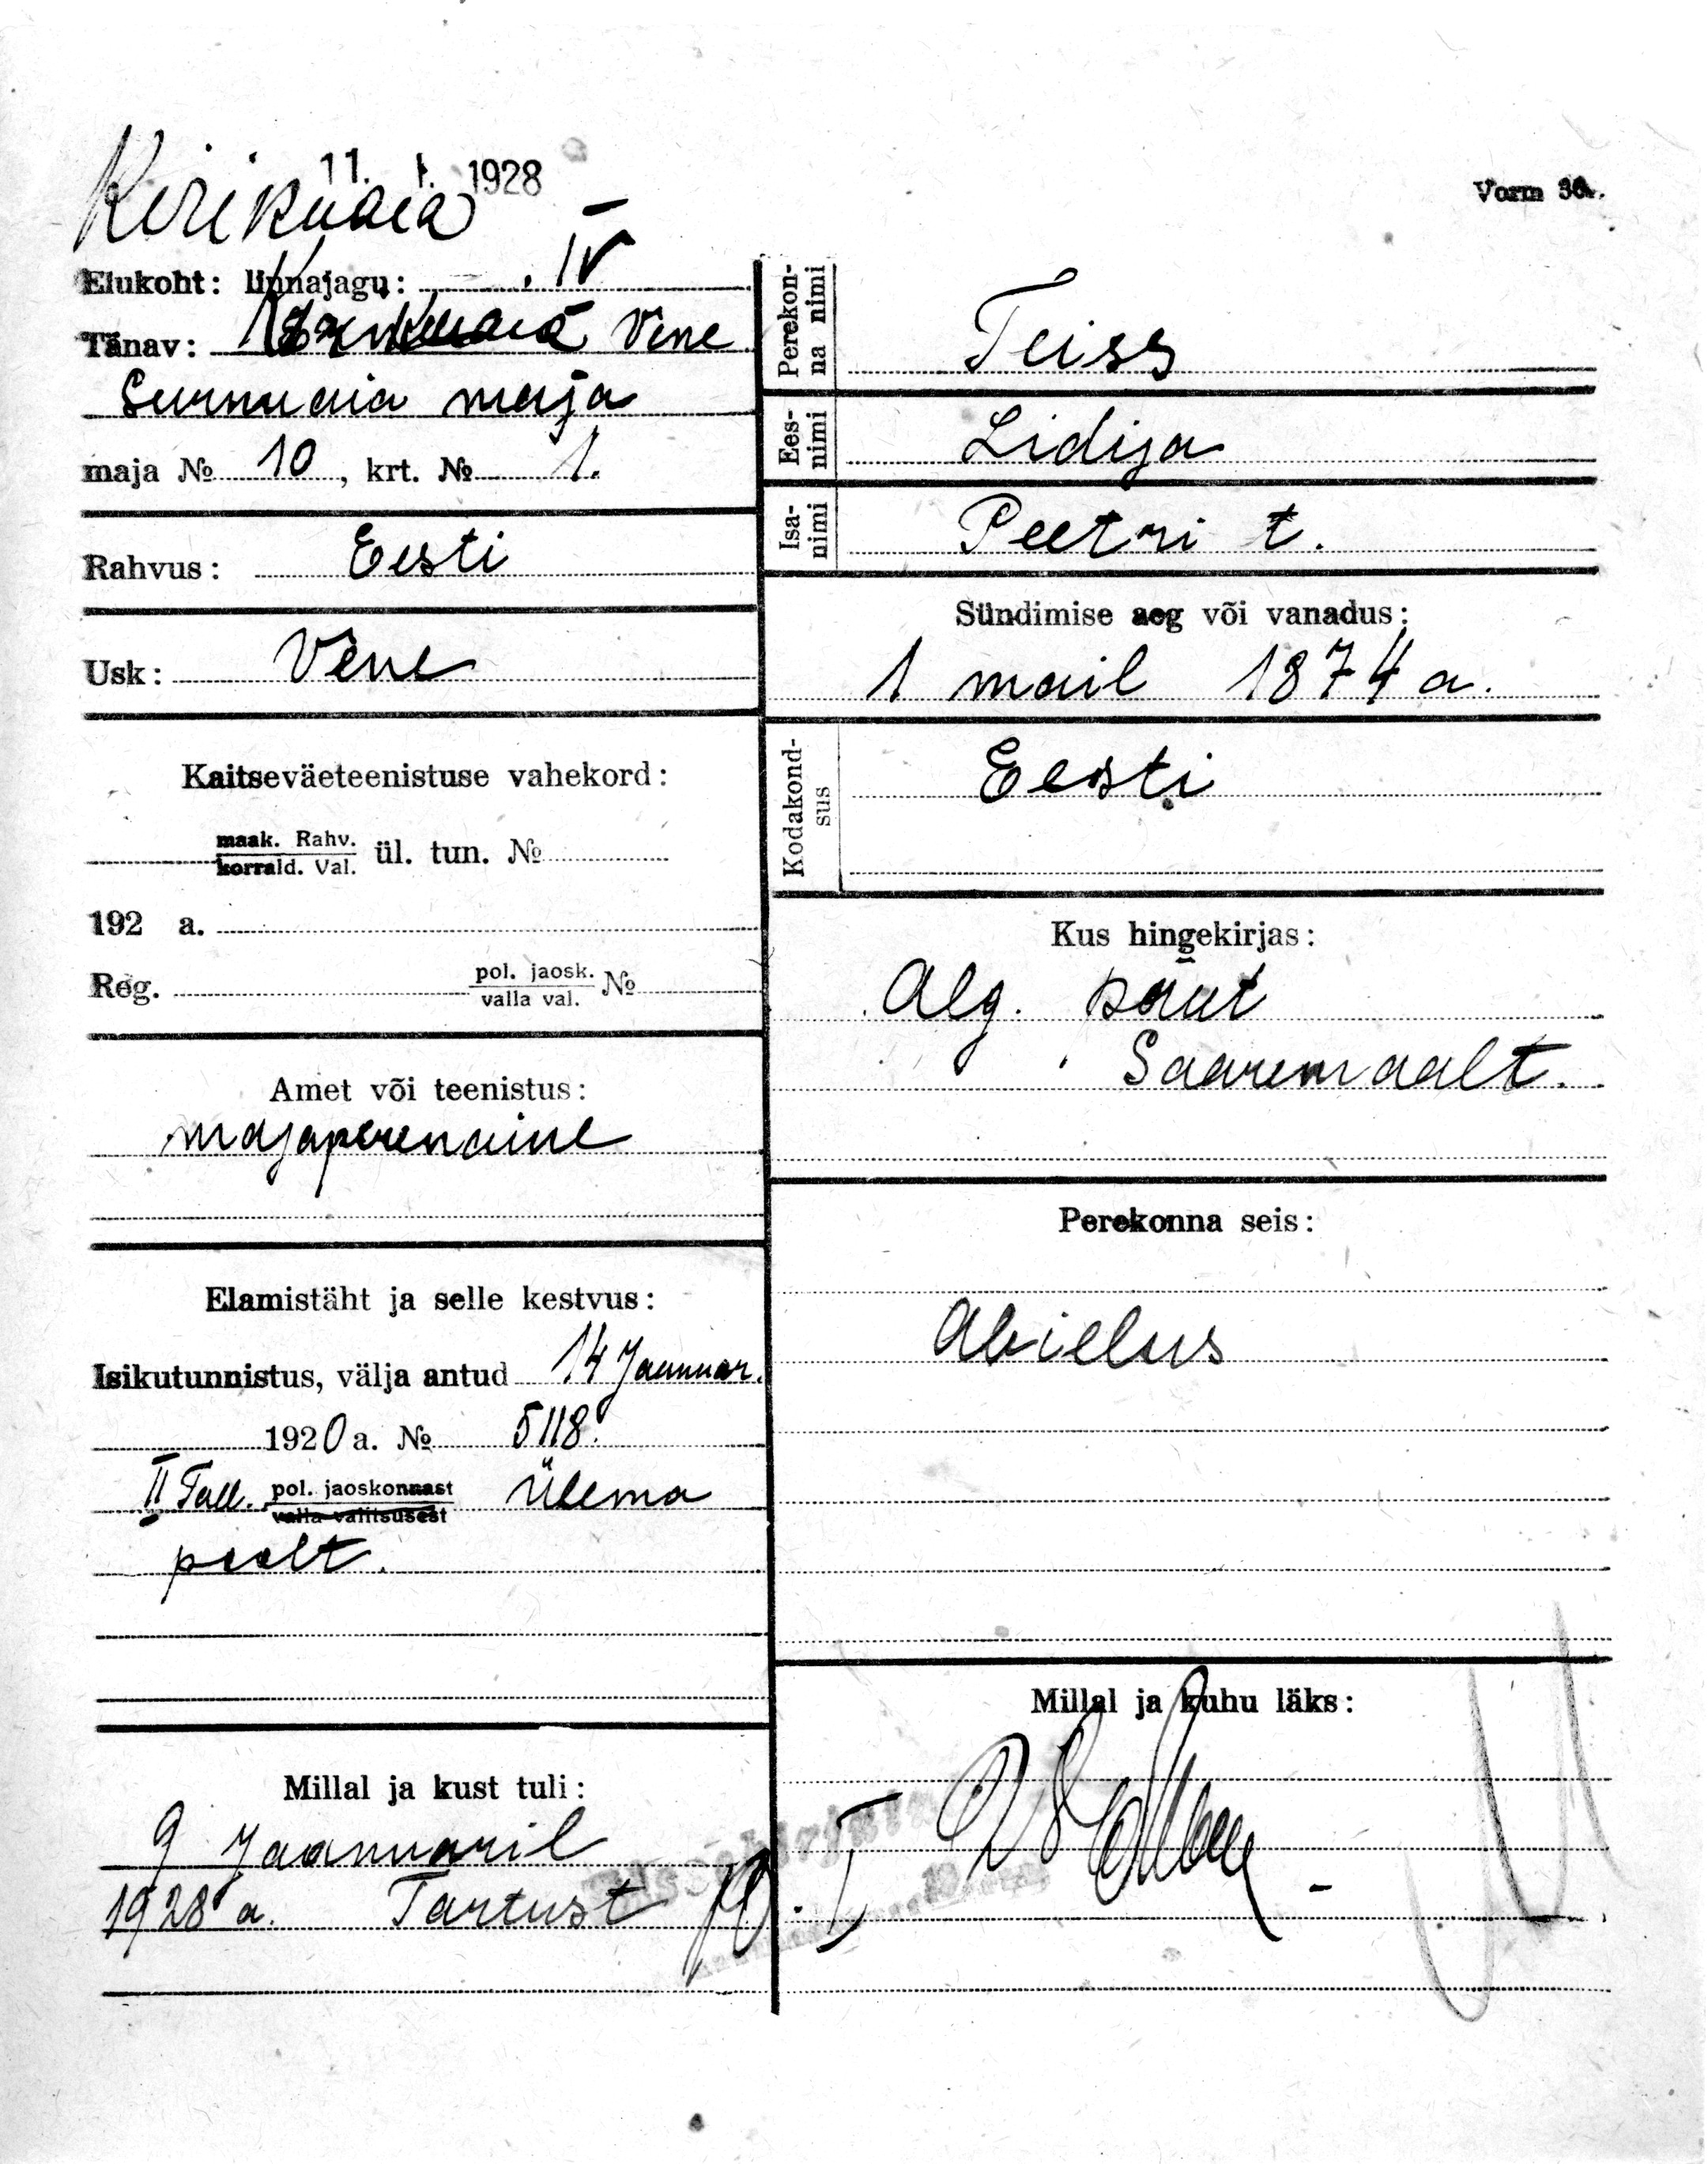 11. I. 1928
Kirikuaia
Vorm 36.
Elukoht: linnajagu: IV
Tänav: Vene
Surnuaia maja
maja № 10, krt. № 1.
Rahvus: Eesti
Usk: Vene
Kaitseväeteenistuse vahekord:
maak. Rahv.
korrald. Val. ül. tun. №
192 a.
Reg. pol. jaosk. №
valla val.
Amet või teenistus:
majaperenaine
Elamistäht ja selle kestvus:
Isikutunnistus, välja antud 14 Jaanuar.
1920 a. № 5118.
II Tall. pol. jaoskonnast Ülema
valla valitsusest
poolt.
Millal ja kust tuli:
9 Jaanuaril
1928 a. Tartust
Perekon-
na nimi
Teiss
Ees-
nimi
Lidija
Isa-
nimi
Peetri t.
Sündimise aeg või vanadus:
1 mail 1874 a.
Kodakond-
sus
Eesti
Kus hingekirjas:
Alg. pärit
Saaremaalt.
Perekonna seis:
Abielus
Millal ja kuhu läks: